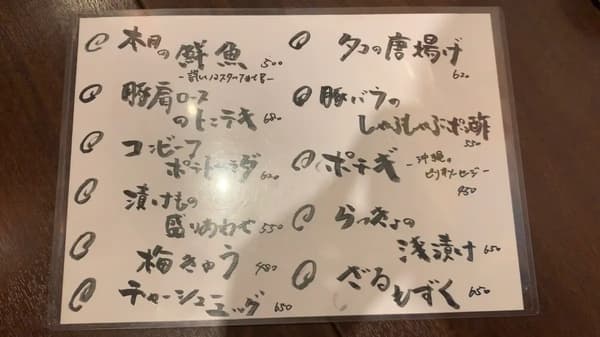 本日の鮮魚 500
豚肩ロース
のトンテキ 680
コンビーフ
ポテトサラダ 620
漬けもの
盛りあわせ 550
梅きゅう 480
チャーシュー
エッグ 650
タコの唐揚げ
620
豚バラの
しゃぶしゃぶポン酢
550
ポテギ -沖縄の
ピリ辛ソーセージ-
450
らっきょの
浅漬け 650
ざる
もずく 650